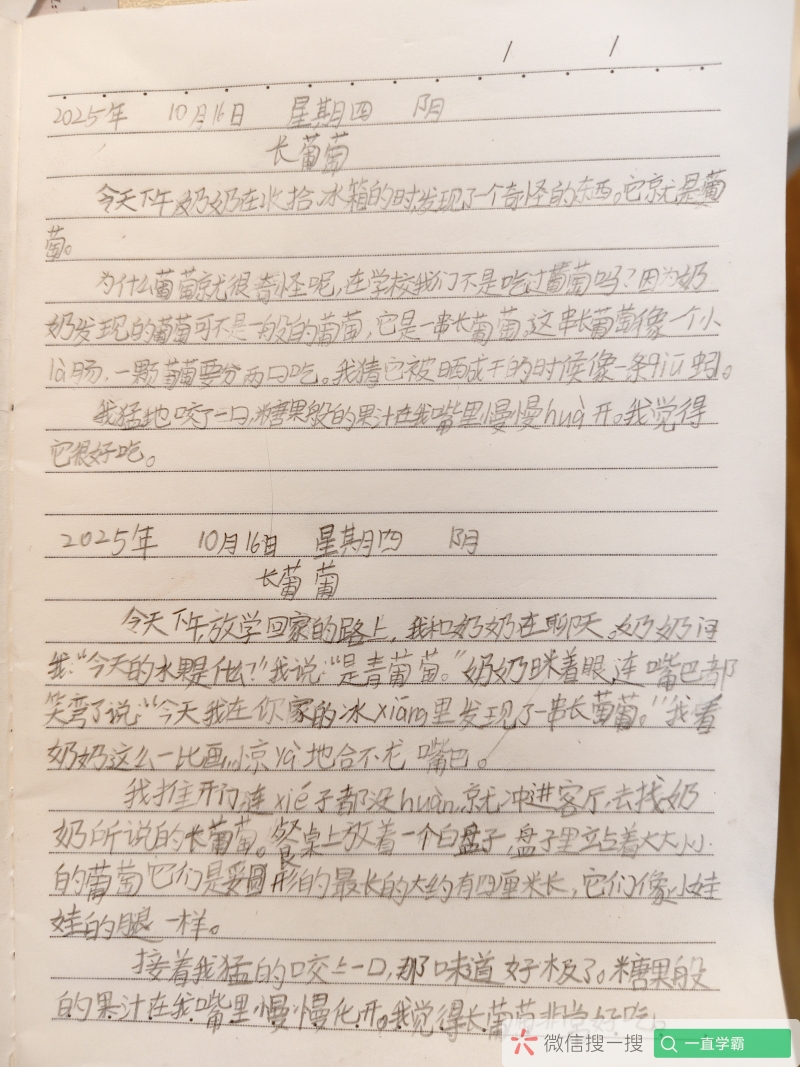 2025年 10月16日 星期四 阴
长葡萄
今天下午奶奶在收拾冰箱的时发现了一个奇怪的东西。它就是葡
萄。
为什么葡萄就很奇怪呢,在学校我们不是吃过葡萄吗?因为奶
奶发现的葡萄可不是一般的葡萄,它是一串长葡萄,这串长葡萄像一个小
là肠,一颗葡萄要分两口吃。我猜它被晒成干的时候像一条qiū蚓。
我猛地咬了一口,糖果般的果汁在我嘴里慢慢huà开。我觉得
它很好吃。
2025年 10月16日 星期四 阴
长葡萄
今天下午,放学回家的路上,我和奶奶在聊天。奶奶问
我:“今天的水果是什么?”我说:“是青葡萄。”奶奶眯着眼,连嘴巴都
笑弯了说:“今天我在你家的冰xiāng里发现了一串长葡萄。”我看
奶奶这么一比画,惊yà地合不尤嘴巴。
我推开门连xié子都没huàn,就冲进客厅去找奶
奶所说的长葡萄。餐桌上放着一个白盘子,盘子里立占着大大小小
的葡萄它们是圆形的最长的大约有四厘米长,它们像小娃
娃的腿一样。
接着我猛的咬上一口,那味道好极了。糖果般
的果汁在我嘴里慢慢化开。我觉得长葡萄非常好吃。
微信搜一搜 一直学霸